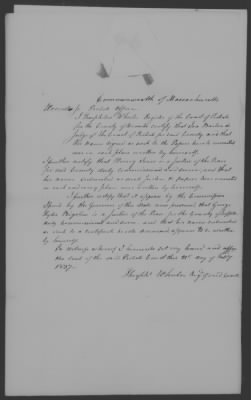 Commonwealth of Massachusetts
Probate Office
I Theophilus Wheeler Register of the Court of Probate
for the County of Worcester certify that
Judge of the Court of Probate for said County, and that
the Name signed as such to the Papers hereto annexed
was in each place written by himself
I further certify that Henry is a Justice of the Peace
for said County duly Commissioned and sworn, and that
his Name subscribed as such Justice to papers here annexed
in each and every place was written by himself
I further certify that it appears by the Commission
Signed by the Governor of this State now produced that George
is a Justice of the Peace for the County of Suffolk
duly Commissioned and sworn and that his Name subscribed
as such to a certificate hereto annexed appears to be written
by himself
In testimony whereof I hereunto set my hand and affix
the Seal of the said Probate Court this day of
1837
Theophs Wheeler Regr of said Court